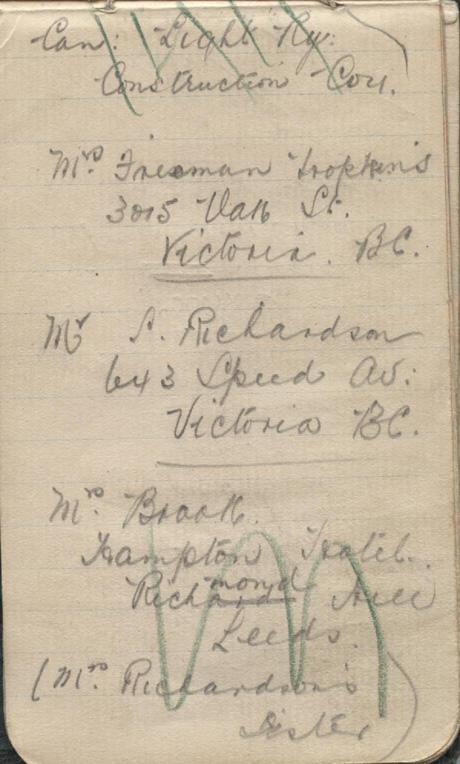 Can: Light Ry:
Construction Cou.
Mrs Freeman Hopkins
3015 Oak St.
Victoria. BC.
Mr S. Richardson
643 Speed Av:
Victoria BC.
Mrs Brook.
Hampton Hotel..
mond
Richard Hill
Leeds.
(Mrs. Richardson's
Sister)